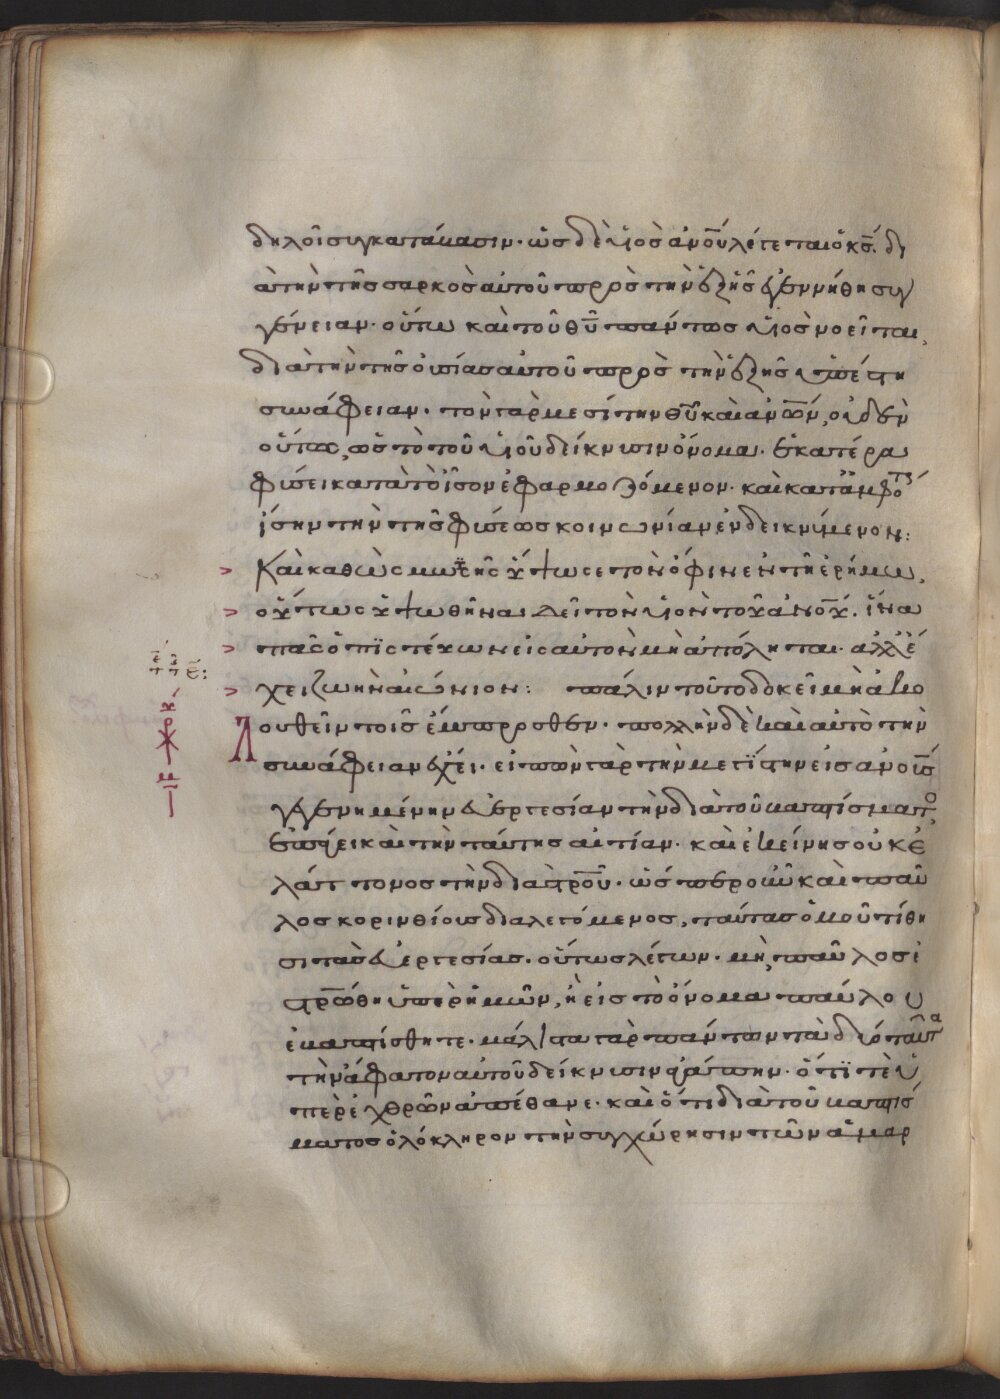 δηλοῖ συγκατάβασιν· ὡς δὲ υἱὸς ἀν̅ου λέγεται ὁ κ̅ς. δι
ὰ τὴν τῆς σαρκὸς αὐτοῦ πρὸς τὴν ἐξ ἧς ἐγεννήθη συγ
γένειαν· οὕτω καὶ τοῦ θ̅υ πάντως υἱὸς νοεῖται,
διὰ τὴν τῆς οὐσίας αὐτοῦ πρὸς τὴν ἐξ ἧς ὑπέστη
συνάφειαν· τὸν γὰρ μεσίτην θ̅υ καὶ ἀν̅ων, οὐδὲν
οὕτως, ὡς τὸ τοῦ υἱοῦ δείκνυσιν ὄνομα· ἑκατέρα
φύσει κατὰ τὸ ἶσον ἐφαρμοζόμενον· καὶ κατ' ἀμφο
ἴσην τὴν τῆς φύσεως κοινωνίαν ἐνδεικνύμενον:
Καὶ καθὼς μωϋσῆς ὕψωσε τὸν ὄφιν ἐν τῇ ἐρήμω,
οὕτως ὑψωθῆναι δεῖ τὸν υἱὸν τοῦ ἀν̅ου. ἵνα
πᾶς ὁ πιστεύων εἰς αὐτὸν μὴ ἀπόληται· ἀλλ' ἔ
χει ζωὴν αἰώνιον: πάλιν τοῦτο δοκεῖ μὴ ἀκο
λουθεῖν τοῖς ἔμπροσθεν· πολλὴν δὲ καὶ αὐτὸ τὴν
συνάφειαν ἔχει· εἰπὼν γὰρ τὴν μεγίστην εἰς ἀν̅ους
γεγενημένην εὐεργεσίαν τὴν διὰ τοῦ βαπτίσματο,
ἐπάγει καὶ τὴν ταύτης αἰτίαν· καὶ ἐκείνης οὐκ ἔ
λαττονος τὴν διὰ στ̅ρου· ὥσπερ οὖν καὶ παῦ
λος κορινθίοις διαλεγόμενος, ταύτας ὁμοῦ τίθη
σι τὰς εὐεργεσίας· οὕτως λέγων· μὴ παῦλος ἐ
στ̅ρώθη ὑπὲρ ἡμῶν, ἢ εἰς τὸ ὄνομα παύλου
ἐβαπτίσθητε· μάλιστα γὰρ πάντων τὰ δύο ταῦτα
τὴν ἄφατον αὐτοῦ δείκνυσιν ἀγάπην· ὅτι τε ὑ
πὲρ ἐχθρῶν ἀπέθανε· καὶ ὅτι διὰ τοῦ βαπτίσ
ματος ὁλόκληρον τὴν συγχώρησιν τῶν ἁμαρ